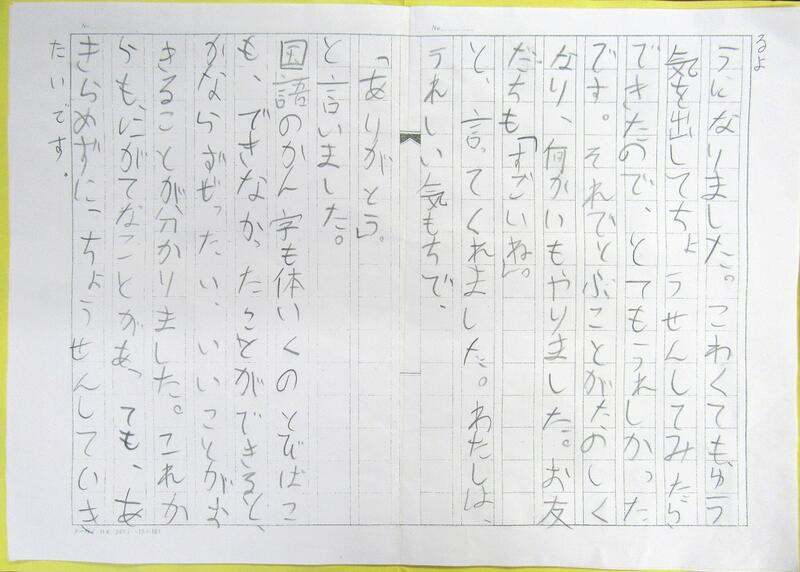 るよ
うになりました。こわくても、ゆう
気を出してちょうせんしてみたら、
できたので、とてもうれしかった
です。それでとぶことがたのしく
なり、何かいもやりました。お友
だちも「すごいね」。
と、言ってくれました。わたしは、
うれしい気もちで、
「ありがとう」。
と言いました。
国語のかん字も体いくのとびばこ
も、できなかったことができると、
かならずぜったい、いいことがお
きることが分かりました。これか
らも、にがてなことがあっても、あ
きらめずに、ちょうせんしていき
たいです。
No.
No.